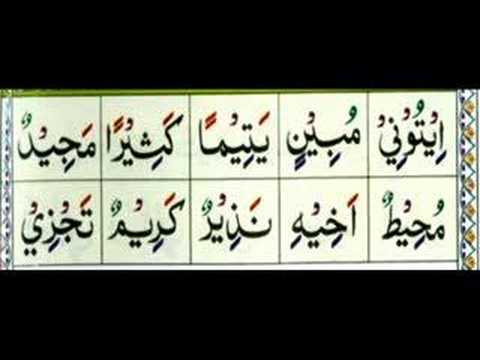 اِيْتُوْنِيْ مُبِيْنٍ يَتِيْمًا كَثِيْرًا مَجِيْدٌ
مُحِيْطٌ اَخِيْهِ نَذِيْرٌ كَرِيْمٌ تَجْزِيْ